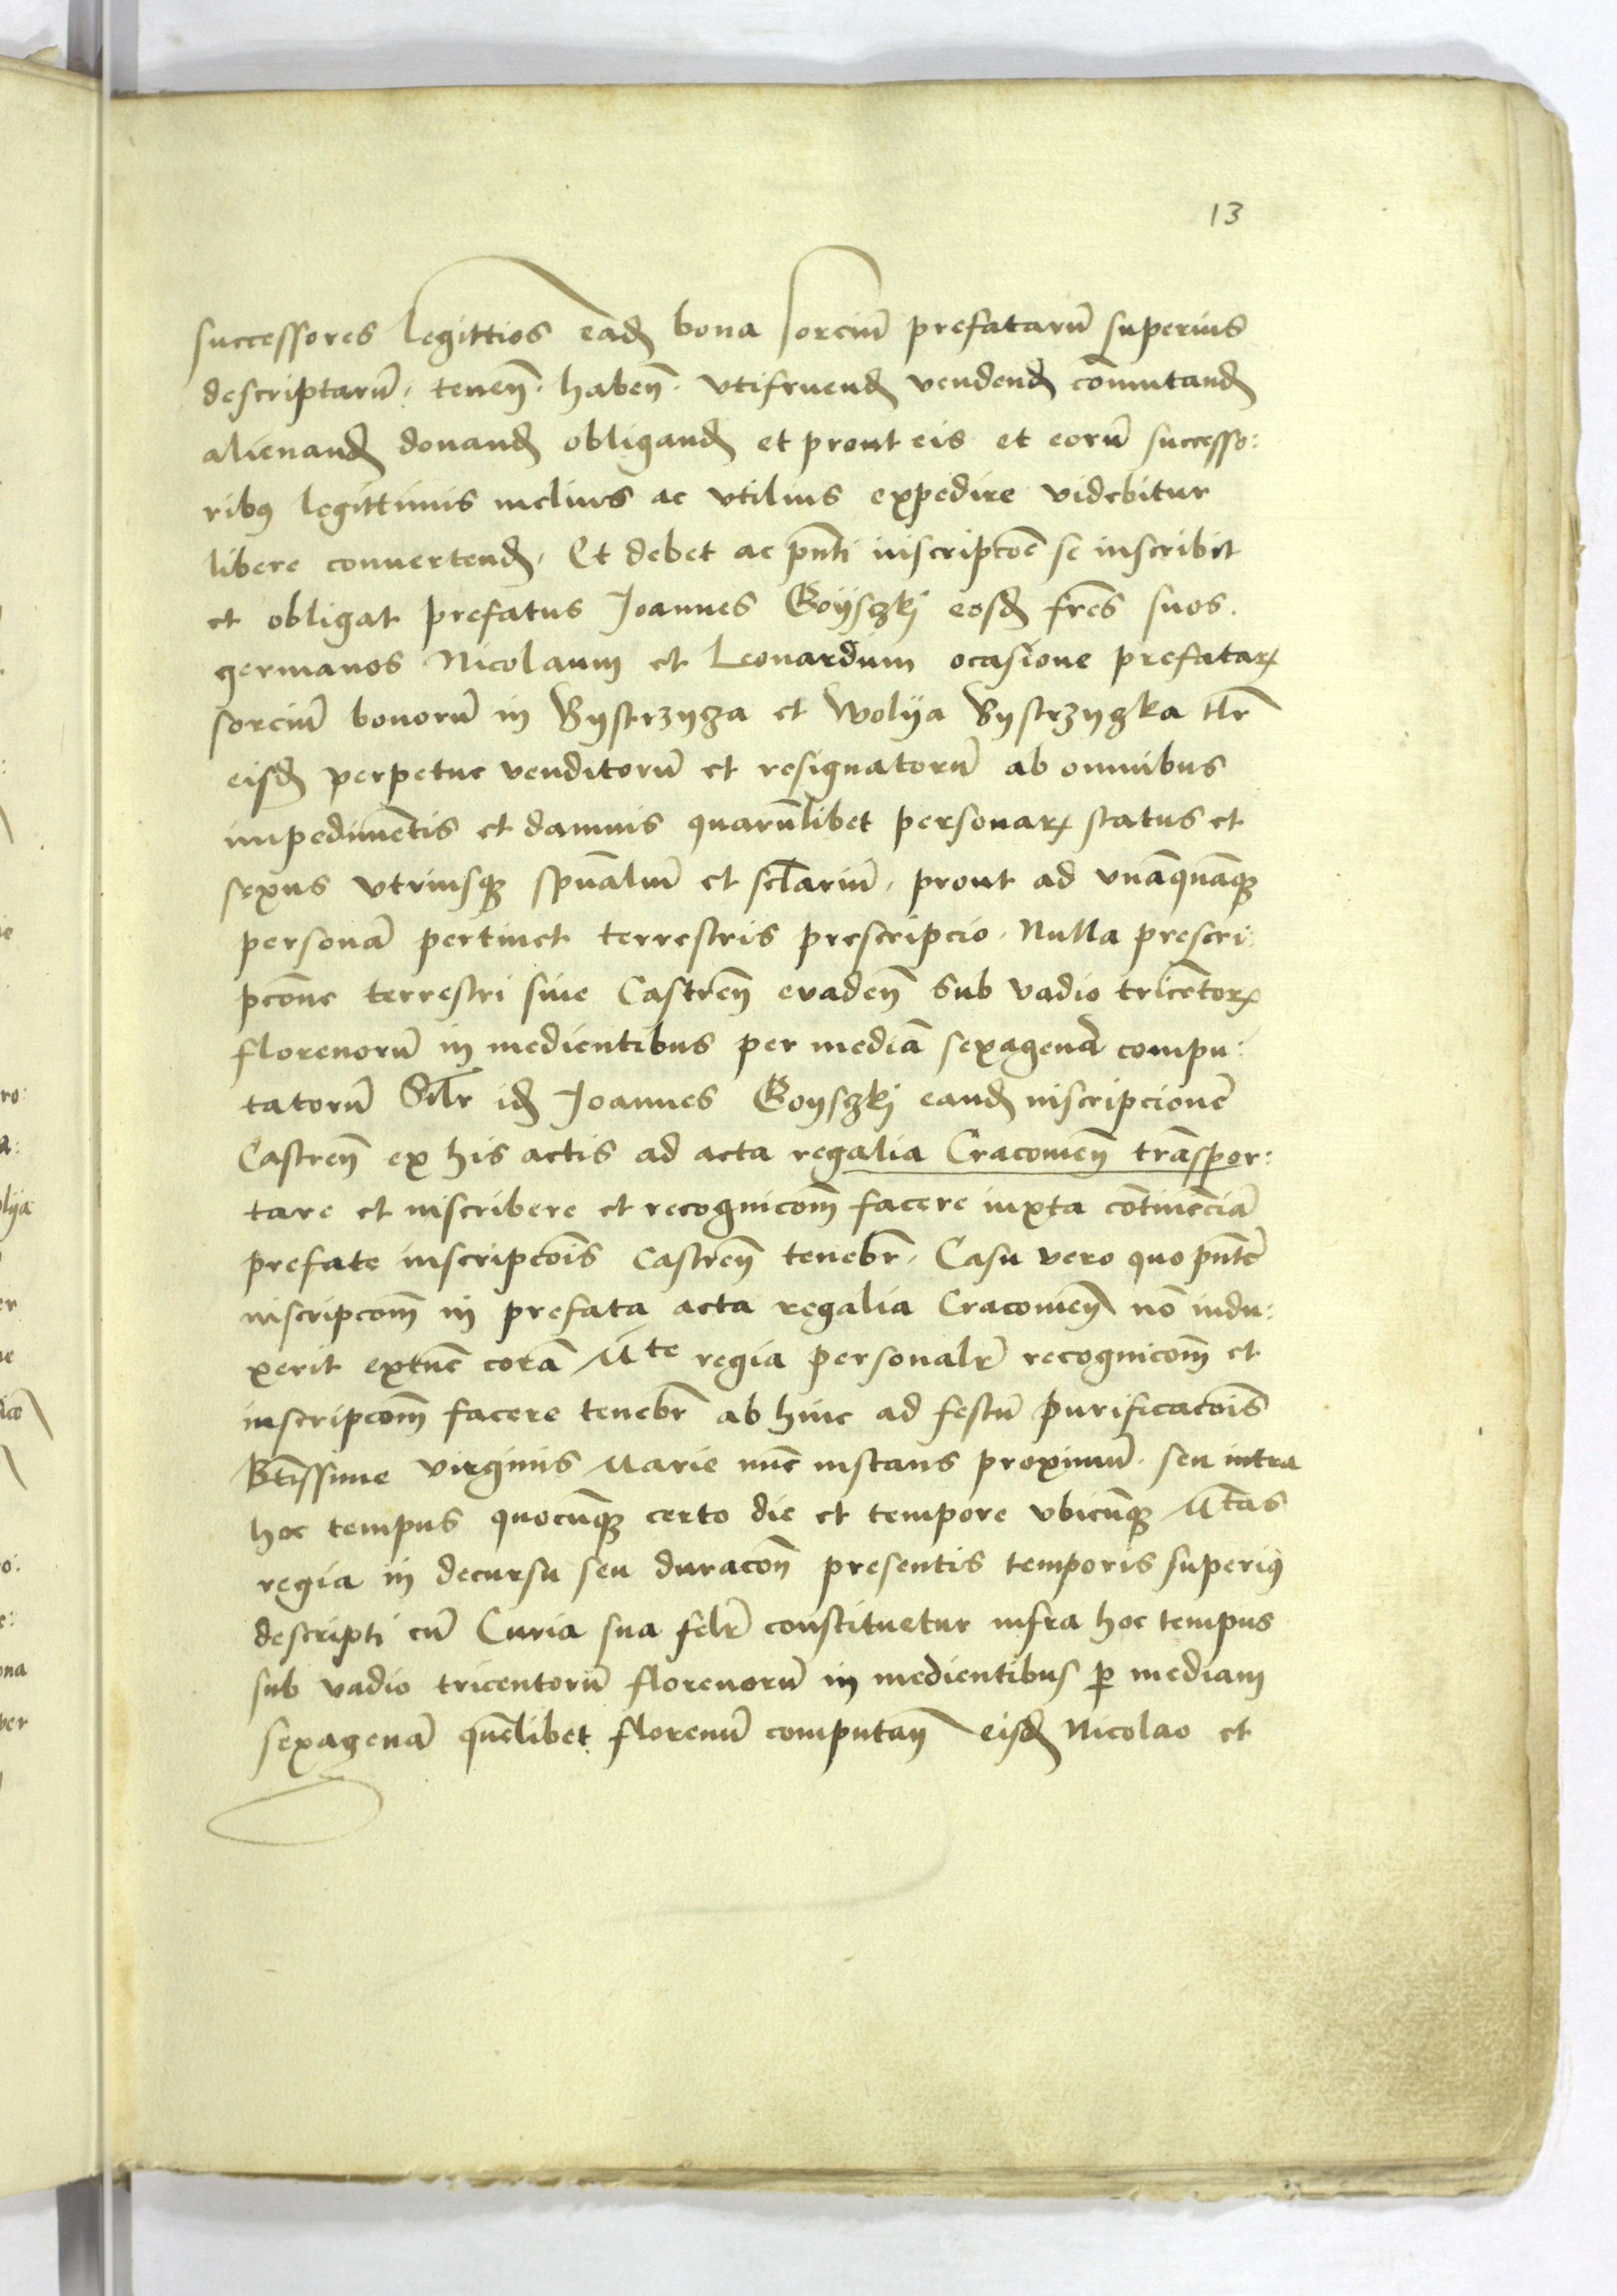 13
successores legittios ead bona sorciu prefataru superius
descriptaru. teneñ. habeñ. vtifruend vendend comutand
alienand donand obligand et prout eis et eoru successo:
ribq legittimis melius ac vtilius expedire videbitur
libere conuertend. Et debet ac pñti inscripcoe se inscribit
et obligat prefatus Joannes Goÿsczkj eosd fres suos.
germanos Nicolaum et Leonardum ocasione prefatarꝝ
sorciu bonoru in Bystrzycza et Wolÿa Bystrzyczka tlr
eisd perpetue venditoru et resignatoru ab omnibus
impedimetis et damnis quarulibet personarꝝ status et
sexus vtriusqꝫ spualiu et sclariu. prout ad vnaquaqꝫ
persona pertinet terrestris prescripcio. Nulla prescri:
pcone terrestri siue Castreñ euadeñ sub vadio tricetorꝝ
florenoru in medientibus per media sexagena compu:
tatoru Silr id Joannes Goysczkj eand inscripcione
Castreñ ex his actis ad acta regalia Cracouieñ traspor:
tare et inscribere et recognicom facere iuxta cotinecia
prefate inscripcois Castreñ tenebr. Casu vero quo pñte
inscripcom in prefata acta regalia Cracouieñ no indu:
xerit extuc cora Mte regia personalr recognicom et
inscripcom facere tenebr ab hinc ad festu purificacois
Btissime virginis Marie nuc instans proximu. seu intra
hoc tempus quocuqꝫ certo die et tempore vbicuqꝫ Mtas
regia in decursu seu duracon presentis temporis superiq
descripti cu Curia sua felr constituetur infra hoc tempus
sub vadio tricentoru florenoru in medientibus ꝑ mediam
sexagena quelibet florenu computan eisd Nicolao et